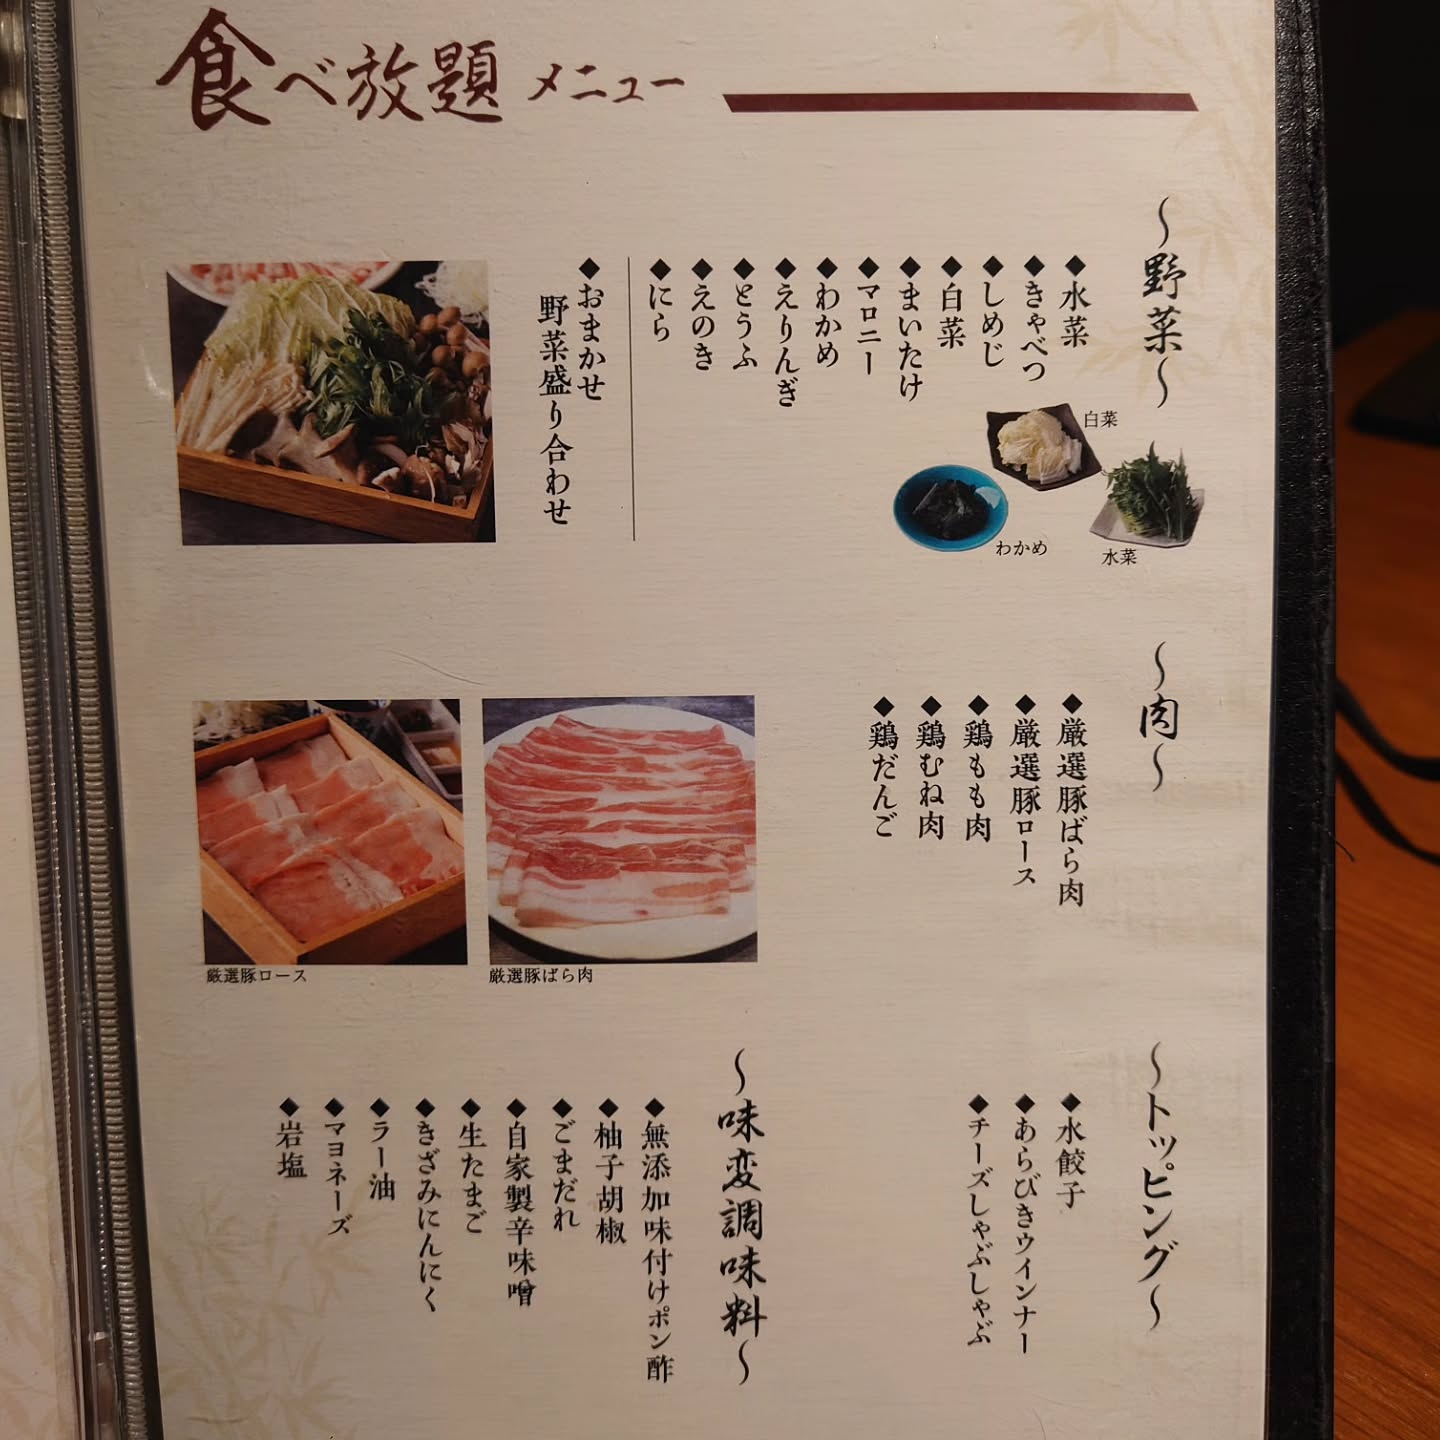 食べ放題 メニュー
〜野菜〜
◆水菜
◆きゃべつ
◆しめじ
◆白菜
◆まいたけ
◆マロニー
◆わかめ
◆えりんぎ
◆とうふ
◆えのき
◆にら
◆おまかせ
野菜盛り合わせ
白菜
わかめ
水菜
〜肉〜
◆厳選豚ばら肉
◆厳選豚ロース
◆鶏もも肉
◆鶏むね肉
◆鶏だんご
厳選豚ばら肉
厳選豚ロース
〜トッピング〜
◆水餃子
◆あらびきウインナー
◆チーズしゃぶしゃぶ
〜味変調味料〜
◆無添加味付けポン酢
◆柚子胡椒
◆ごまだれ
◆自家製辛味噌
◆生たまご
◆きざみにんにく
◆ラー油
◆マヨネーズ
◆岩塩